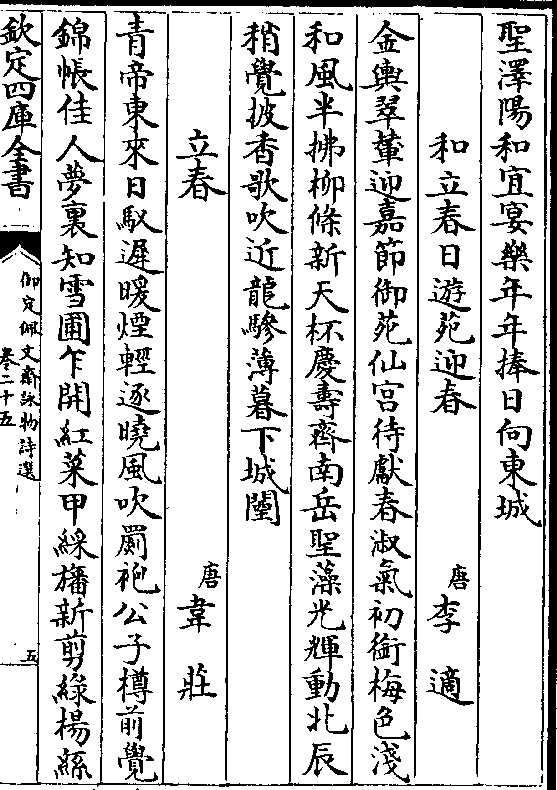 聖澤陽和宜宴樂年年捧日向東城
和立春日遊苑迎春 唐李適
金輿翠輦迎嘉節御苑仙宮待獻春淑氣初銜梅色淺
和風半拂柳條新天杯慶壽齊南岳聖藻光輝動北辰
稍覺披香歌吹近龍驂薄暮下城闉
立春 唐韋莊
青帝東來日馭遲暖煙輕逐曉風吹罽袍公子樽前覺
錦帳佳人夢裏知雪圃乍開紅菜甲綵旛新剪綠楊絲
欽定四庫全書
御定佩文齋詠物詩選
卷二十五
五